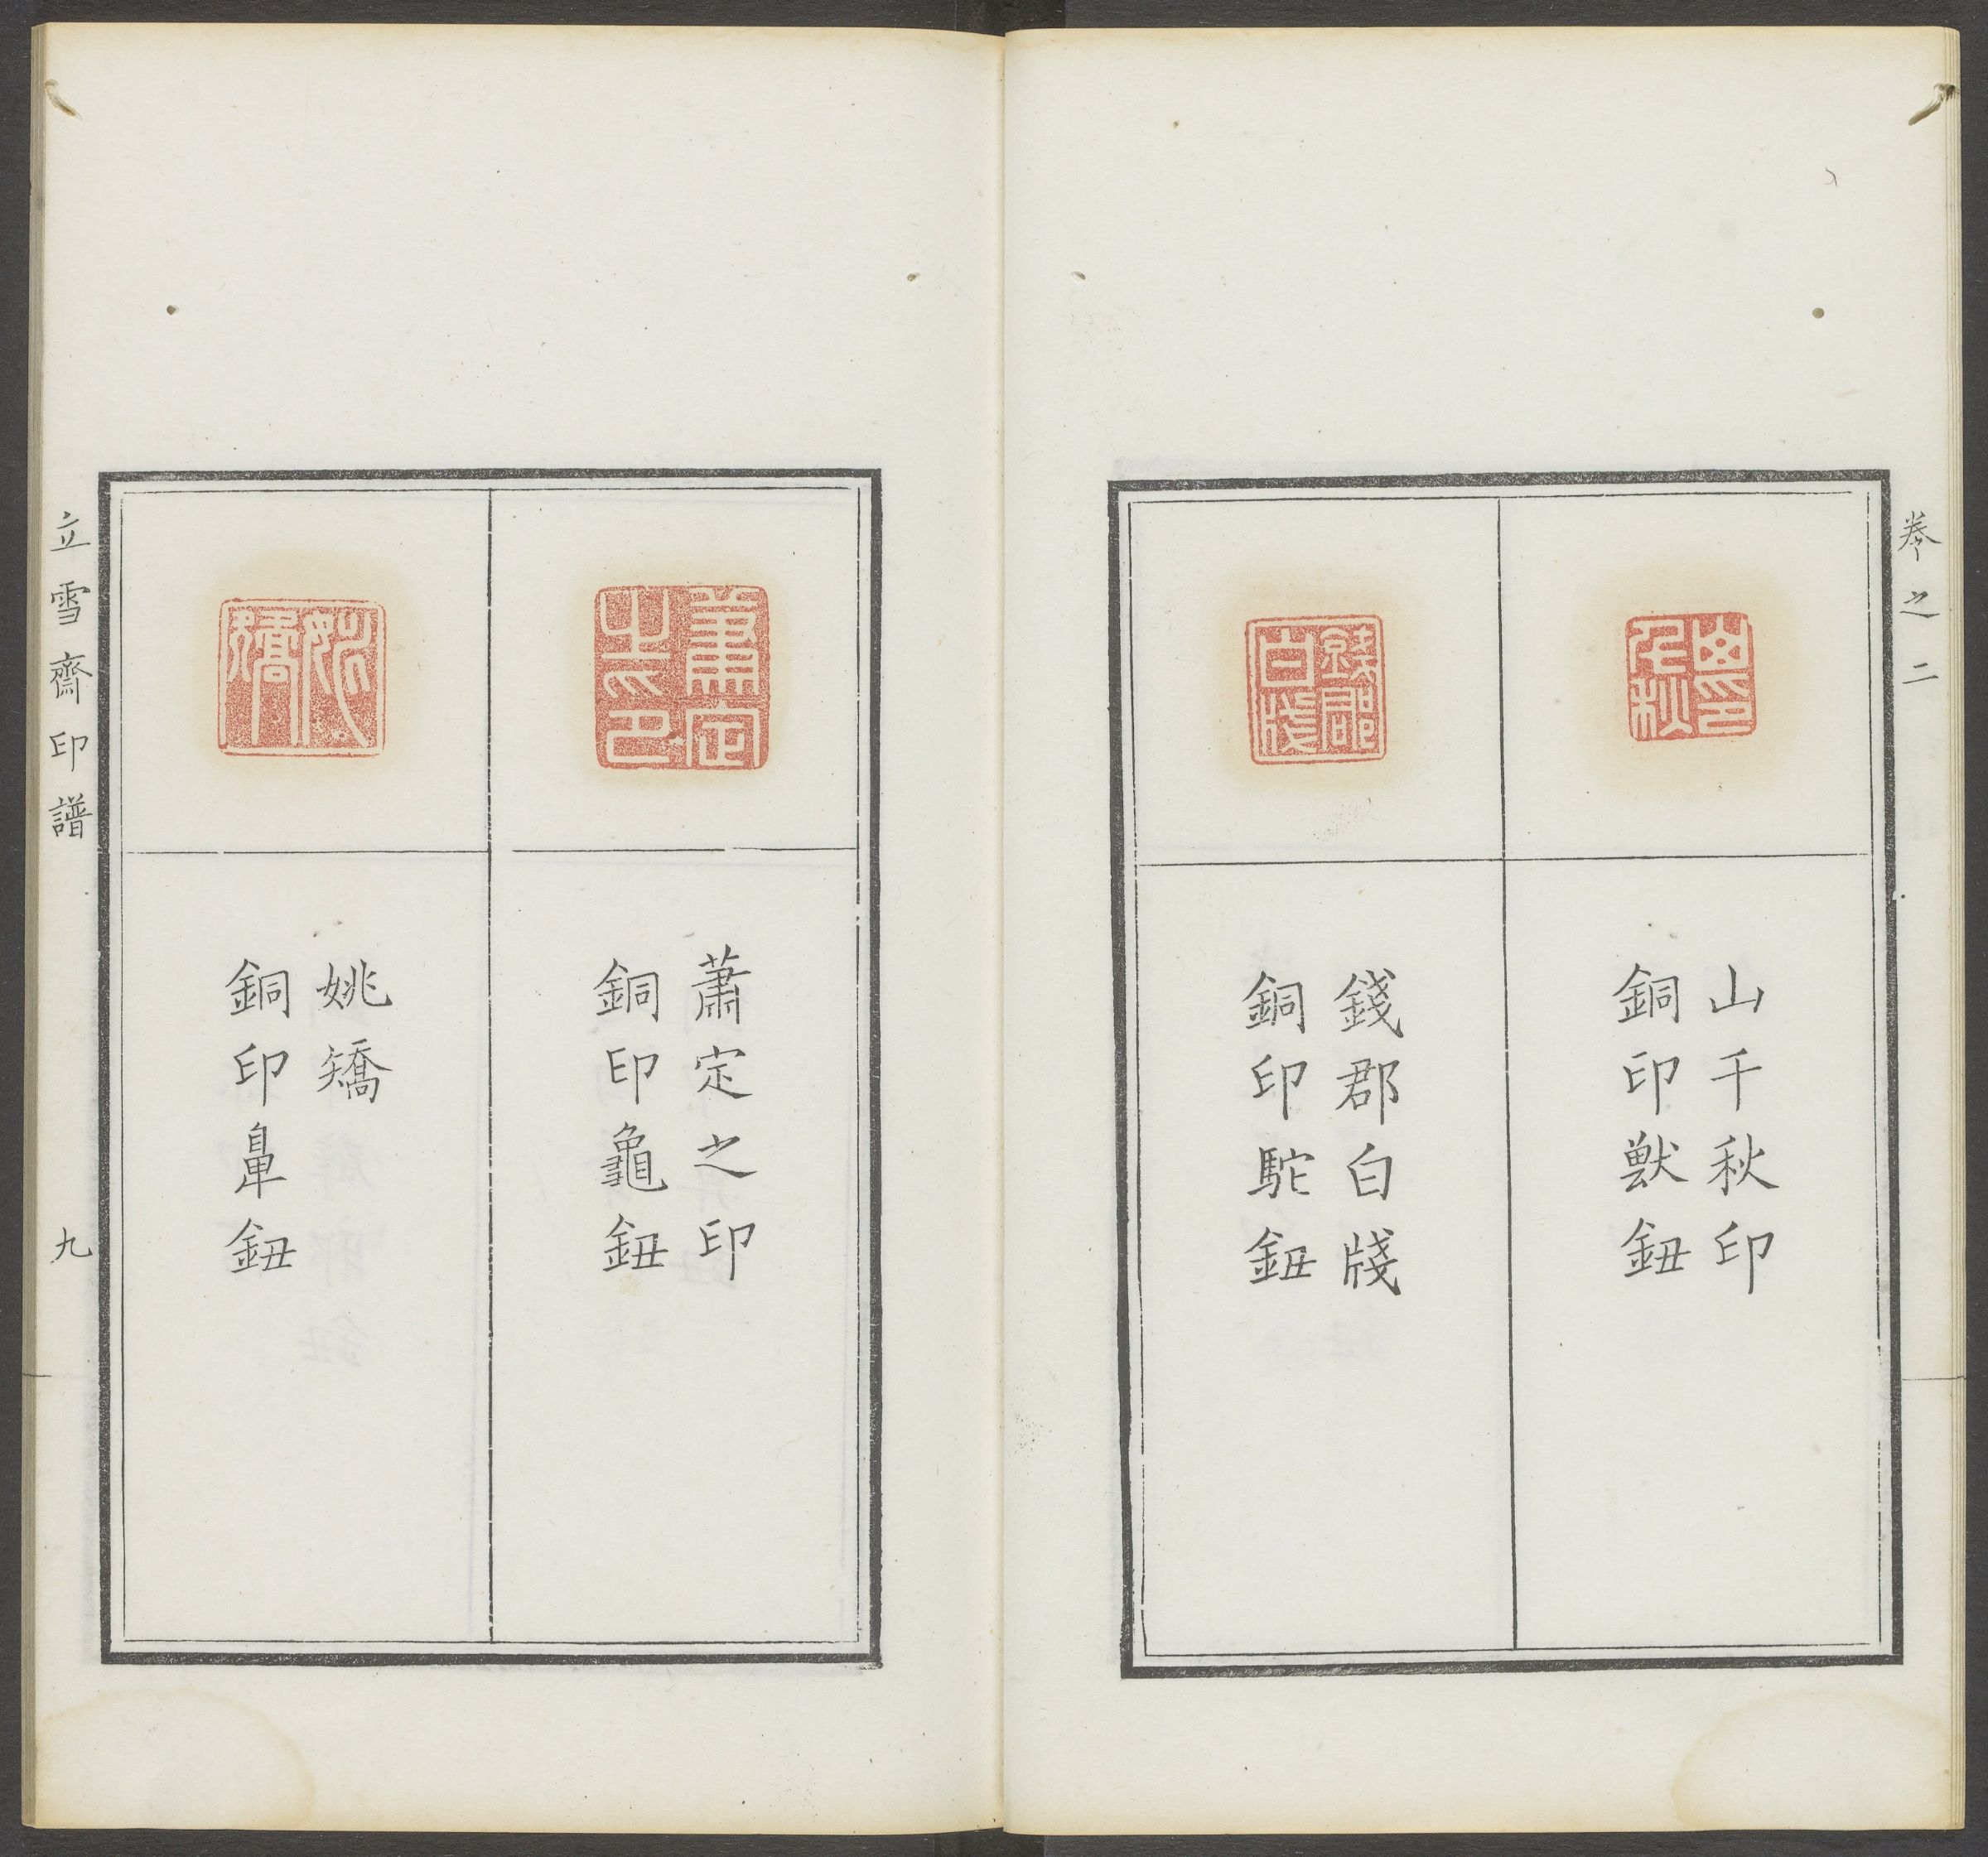 卷之二
山千秋印
銅印獸鈕
錢郡白牋
銅印駝鈕
蕭定之印
銅印龜鈕
姚矯
銅印鼻鈕
立雪齋印譜
九